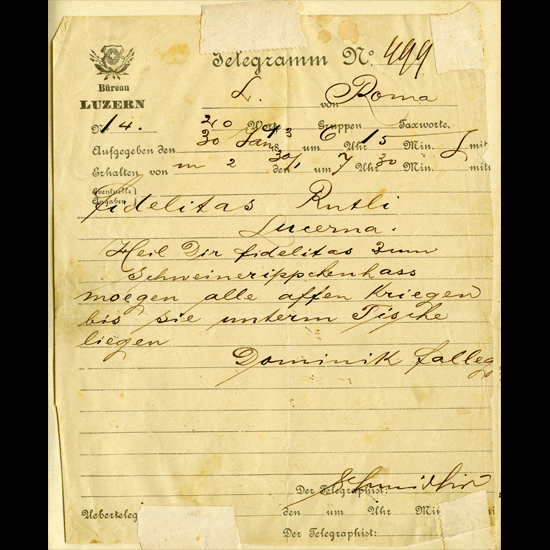 Telegramm No. 499
Büreau
LUZERN
L. von Roma
No 14. 20 Worte Gruppen Taxworte.
Aufgegeben den 30 Jan 93 um 6 Uhr 15 Min. mitt
Erhalten von m 2 den 30/1 um 7 Uhr 30 Min. mitt
Eventuelle
Angaben
fidelitas Rutli
Lucerna.
Heil Dir fidelitas zum
Schweinerippchenhass
moegen alle affen Kriegen
bis sie unterm Tische
liegen
Dominik
Der Telegraphist:
Ueberteleg
den um Uhr Min
Der Telegraphist: